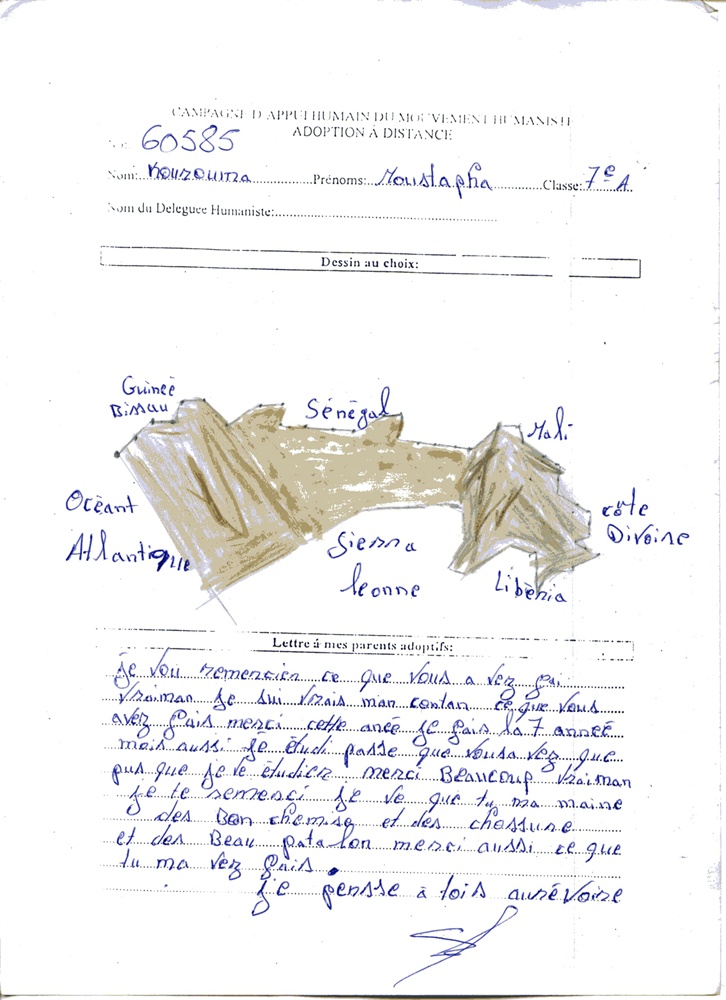 CAMPAGNE D'APPUI HUMAIN DU MOUVEMENT HUMANISTE
ADOPTION À DISTANCE
60585
Nom: Kourouma Prénoms: Moustapha Classe: 7e A
Nom du Deleguee Humaniste:
Dessin au choix:
Guineè
Bissau
Sénégal
Mali
Ocèant
Atlantique
côte
Divoire
Sierra
leonne
Libèria
Lettre á mes parents adoptifs:
je vou remercier ce que vous a vez fai
vraiman je sui vrais man contan ce que vous
avez fais merci cette aneé je fais la 7 anneé
mais aussi jé étudi passe que vousa vez que
pus que je ve étudier merci Beaucoup vraiman
je te remerci je ve que tu ma maine
des Bon chemise et des chossure
et des Beau patalon merci aussi ce que
tu ma vez fais.
je pensse à tois aurévoire